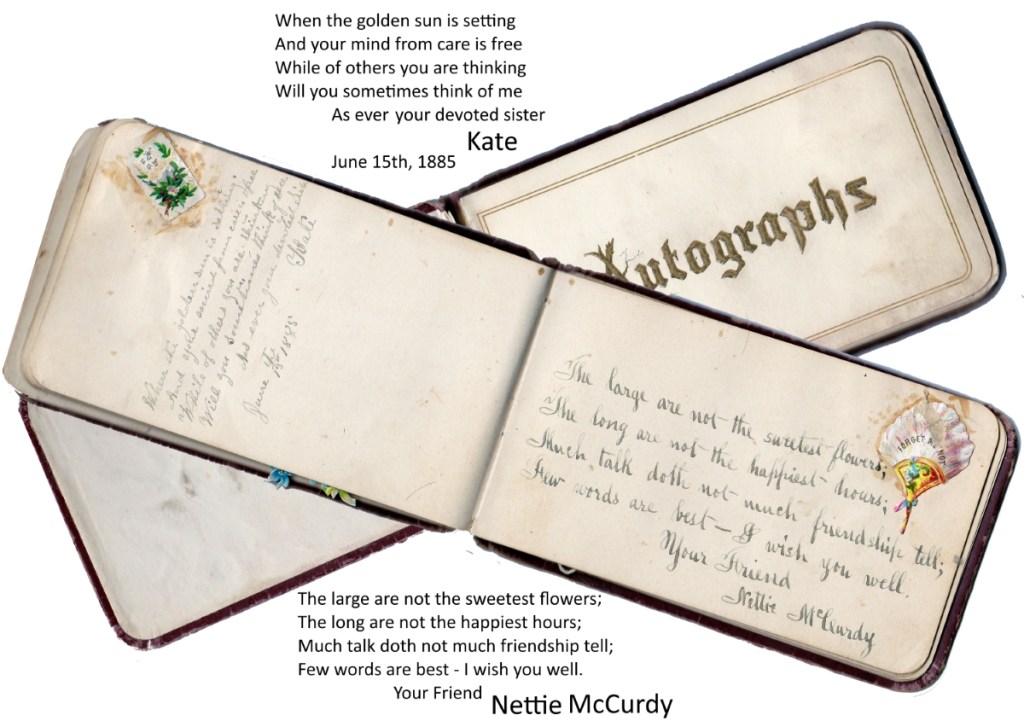 When the golden sun is setting
And your mind from care is free
While of others you are thinking
Will you sometimes think of me
As ever your devoted sister
Kate
June 15th, 1885
Autographs
When the golden sun is setting
And your mind from care is free
While of others you are thinking
Will you sometimes think of me
As ever your devoted sister
Kate
June the 15th 1885
The large are not the sweetest flowers;
The long are not the happiest hours;
Much talk doth not much friendship tell;
Few words are best – I wish you well.
Your Friend
Nettie McCurdy
FORGET ME NOT
The large are not the sweetest flowers;
The long are not the happiest hours;
Much talk doth not much friendship tell;
Few words are best - I wish you well.
Your Friend
Nettie McCurdy